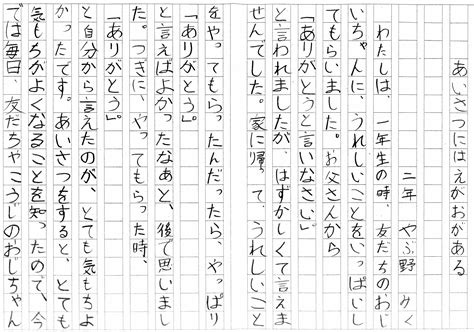 あいさつにはえがおがある
二年 やぶ野 みく
わたしは、一年生の時、友だちのおじ
いちゃんに、うれしいことをいっぱいし
てもらいました。お父さんから
「ありがとうと言いなさい。」
と言われましたが、はずかしくて言えま
せんでした。家に帰って、うれしいこと
をやってもらったんだったら、やっぱり
「ありがとう。」
と言えばよかったなあと、後で思いまし
た。つぎに、やってもらった時、
「ありがとう。」
と自分から言えたのが、とても気もちよ
かったです。あいさつをすると、とても
気もちがよくなることを知ったので、今
では毎日、友だちやこうじのおじちゃん